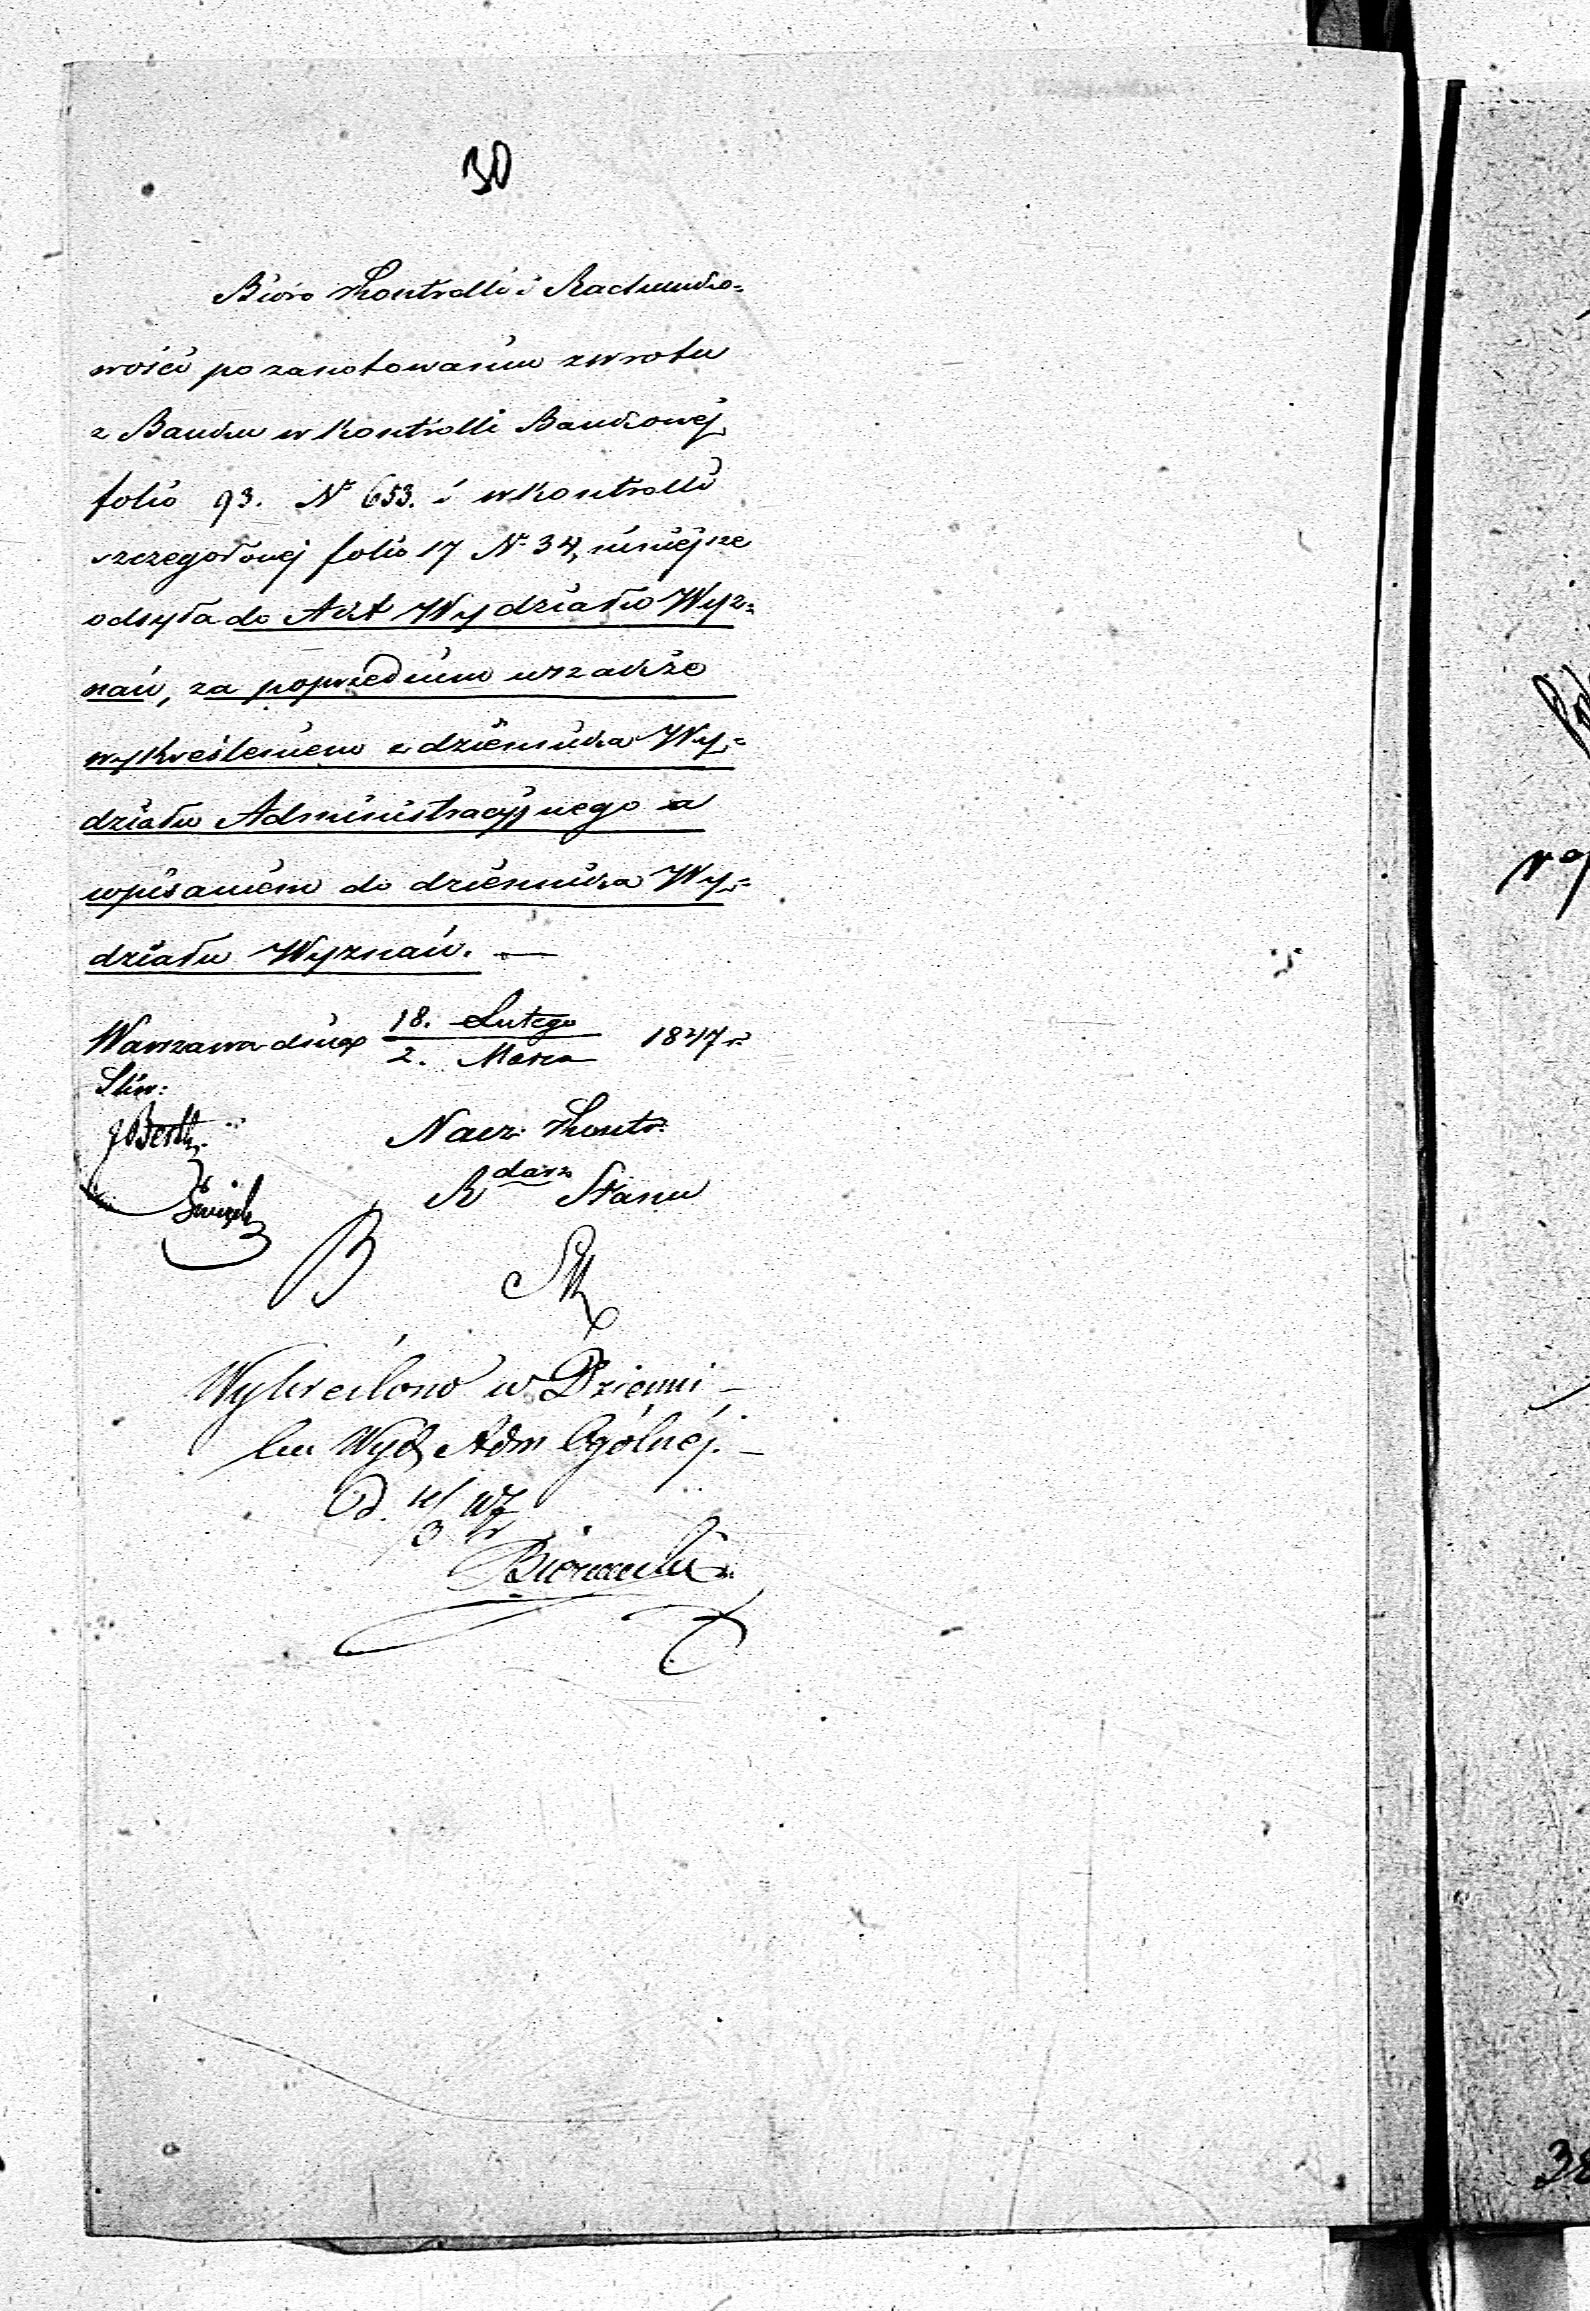 30
Biuro Kontrolli i Rachunko=
wości po zanotowaniu zwrotu
z Banku w Kontrolli Bankowej
folio 93. N° 653. i w Kontrolli
szczegołowej folio 17 N° 34, niniejsze
odsyła do Akt Wydziału Wyz=
nań, za poprzedniem wszakże
wykreśleniem z dziennika Wy=
działu Administracyjnego a
wpisaniem do dziennika Wy=
działu Wyznań. —
Warszawa dnia 18. Lutego / 2. Marca 1847 r
Nacz: Kontr:
R darz Stanu
B
Wykreślono w Dzienni-
ku Wydz Adm Ogólnéj. —